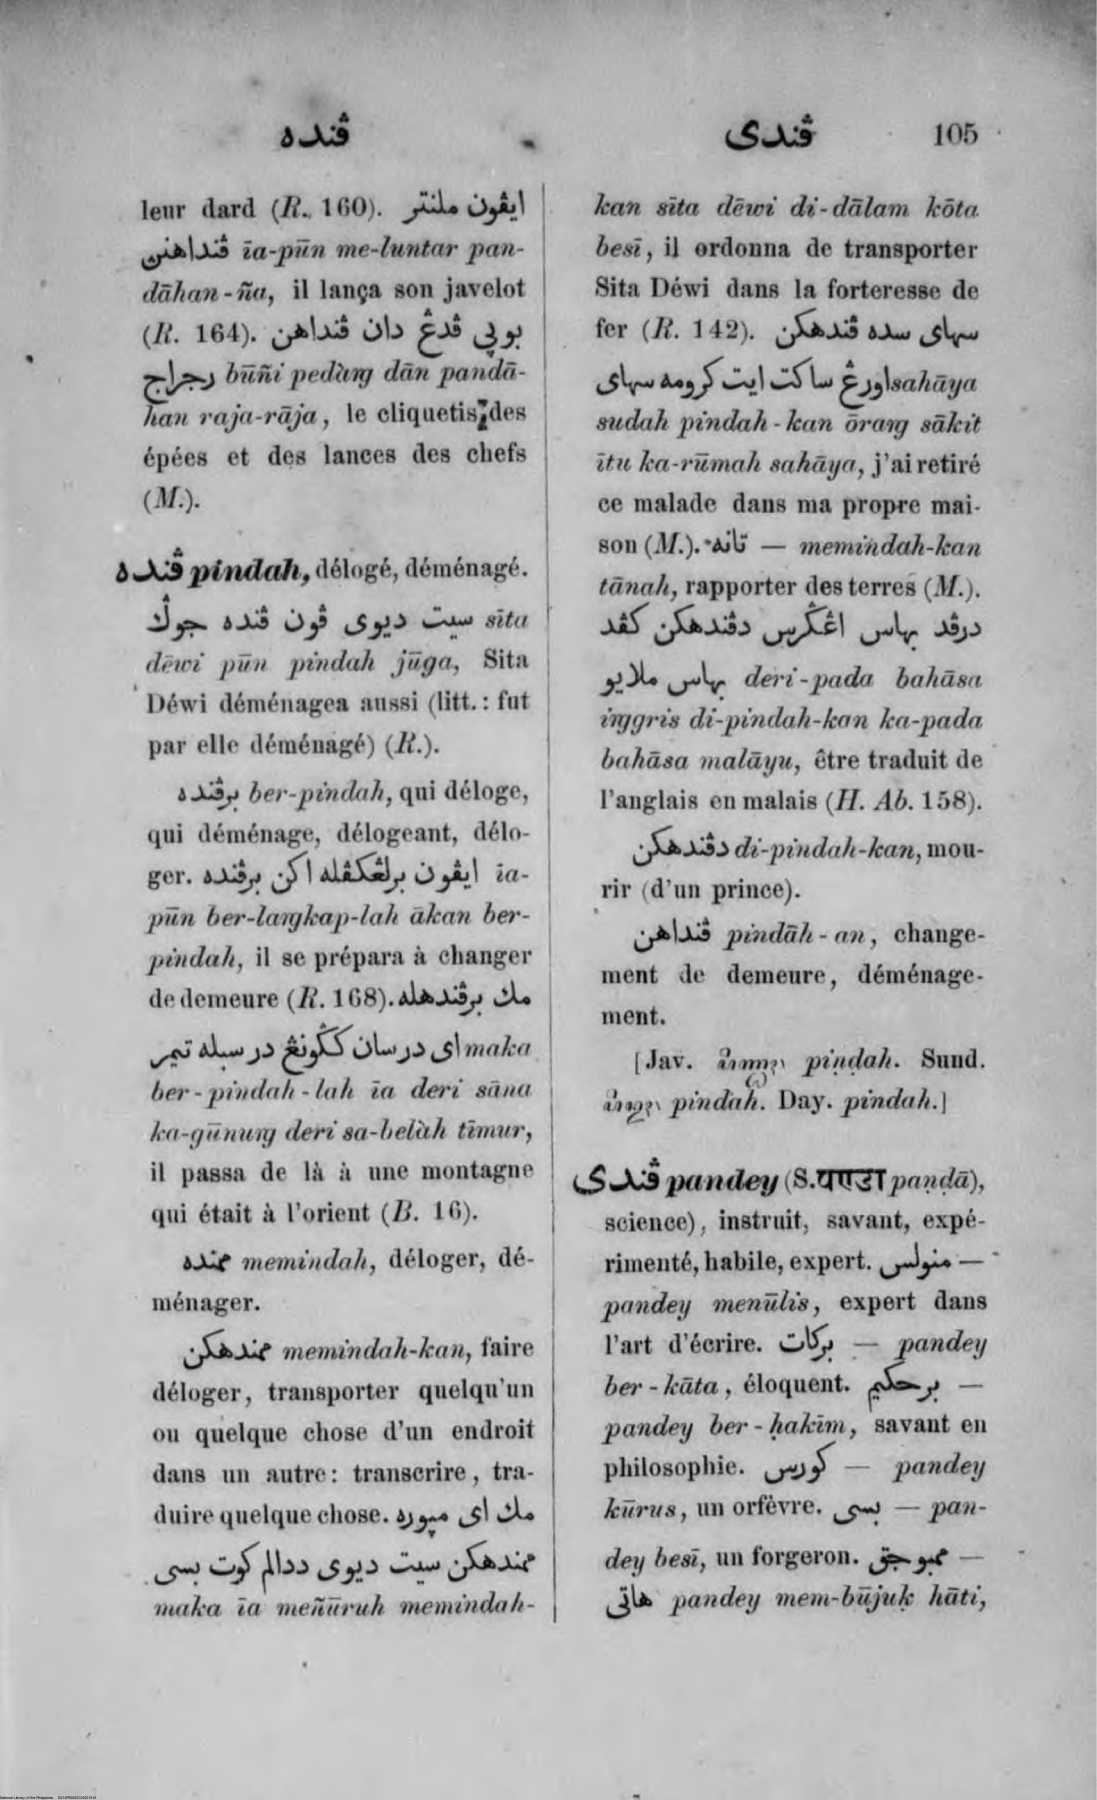 ڤنده
ڤندى
105
leur dard (R. 160). ايڤون ملنتر
ڤنداهنڽ īa-pūn me-luntar pan-
dāhan-ña, il lança son javelot
(R. 164). بوڽي ڤدڠ دان ڤنداهن
رجراج būñi pedàrg dān pandā-
han raja-rāja, le cliquetis des
épées et des lances des chefs
(M.).
ڤنده pindah, délogé, déménagé.
سيت ديوى ڤون ڤنده جوݢ sīta
dēwi pūn pindah jūga, Sita
Déwi déménagea aussi (litt.: fut
par elle déménagé) (R.).
برڤنده ber-pindah, qui déloge,
qui déménage, délogeant, délo-
ger. ايڤون برلڠكڤله اكن برڤنده īa-
pūn ber-largkap-lah ākan ber-
pindah, il se prépara à changer
de demeure (R. 168). مك برڤندهله
اى درسان كݢونڠ درسبله تيمر maka
ber-pindah-lah īa deri sāna
ka-gūnurg deri sa-belàh tīmur,
il passa de là à une montagne
qui était à l'orient (B. 16).
ممنده memindah, déloger, dé-
ménager.
ممندهكن memindah-kan, faire
déloger, transporter quelqu'un
ou quelque chose d'un endroit
dans un autre: transcrire, tra-
duire quelque chose. مك اى مڽوره
ممندهكن سيت ديوى ددالم كوت بسى
maka īa meñūruh memindah-
kan sīta dēwi di-dālam kōta
besī, il ordonna de transporter
Sita Déwi dans la forteresse de
fer (R. 142). سهاى سده ڤندهكن
اورڠ ساكت ايت كرومه سهاى sahāya
sudah pindah-kan ōrarg sākit
ītu ka-rūmah sahāya, j'ai retiré
ce malade dans ma propre mai-
son (M.). تانه — memindah-kan
tānah, rapporter des terres (M.).
درڤد بهاس اڠݢرس دڤندهكن كڤد
بهاس ملايو deri-pada bahāsa
irggris di-pindah-kan ka-pada
bahāsa malāyu, être traduit de
l'anglais en malais (H. Ab. 158).
دڤندهكن di-pindah-kan, mou-
rir (d'un prince).
ڤنداهن pindāh-an, change-
ment de demeure, déménage-
ment.
[Jav. piṇḍah. Sund.
pindah. Day. pindah.]
ڤندى pandey (S. पण्डा paṇḍā),
science), instruit, savant, expé-
rimenté, habile, expert. منولس —
pandey menūlis, expert dans
l'art d'écrire. بركات — pandey
ber-kāta, éloquent. برحكيم —
pandey ber-ḥakīm, savant en
philosophie. كورس — pandey
kūrus, un orfèvre. بسى — pan-
dey besī, un forgeron. ممبوجق —
هاتى pandey mem-būjuḳ hāti,